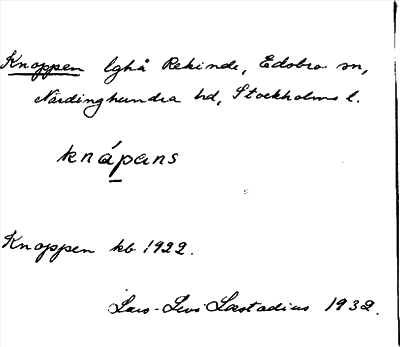 Knoppen lghå Rekinde, Edsbro sn,
Närdinghundra hd, Stockholms l.
knápans
Knoppen kb 1922.
Lars-Levi Læstadius 1932.